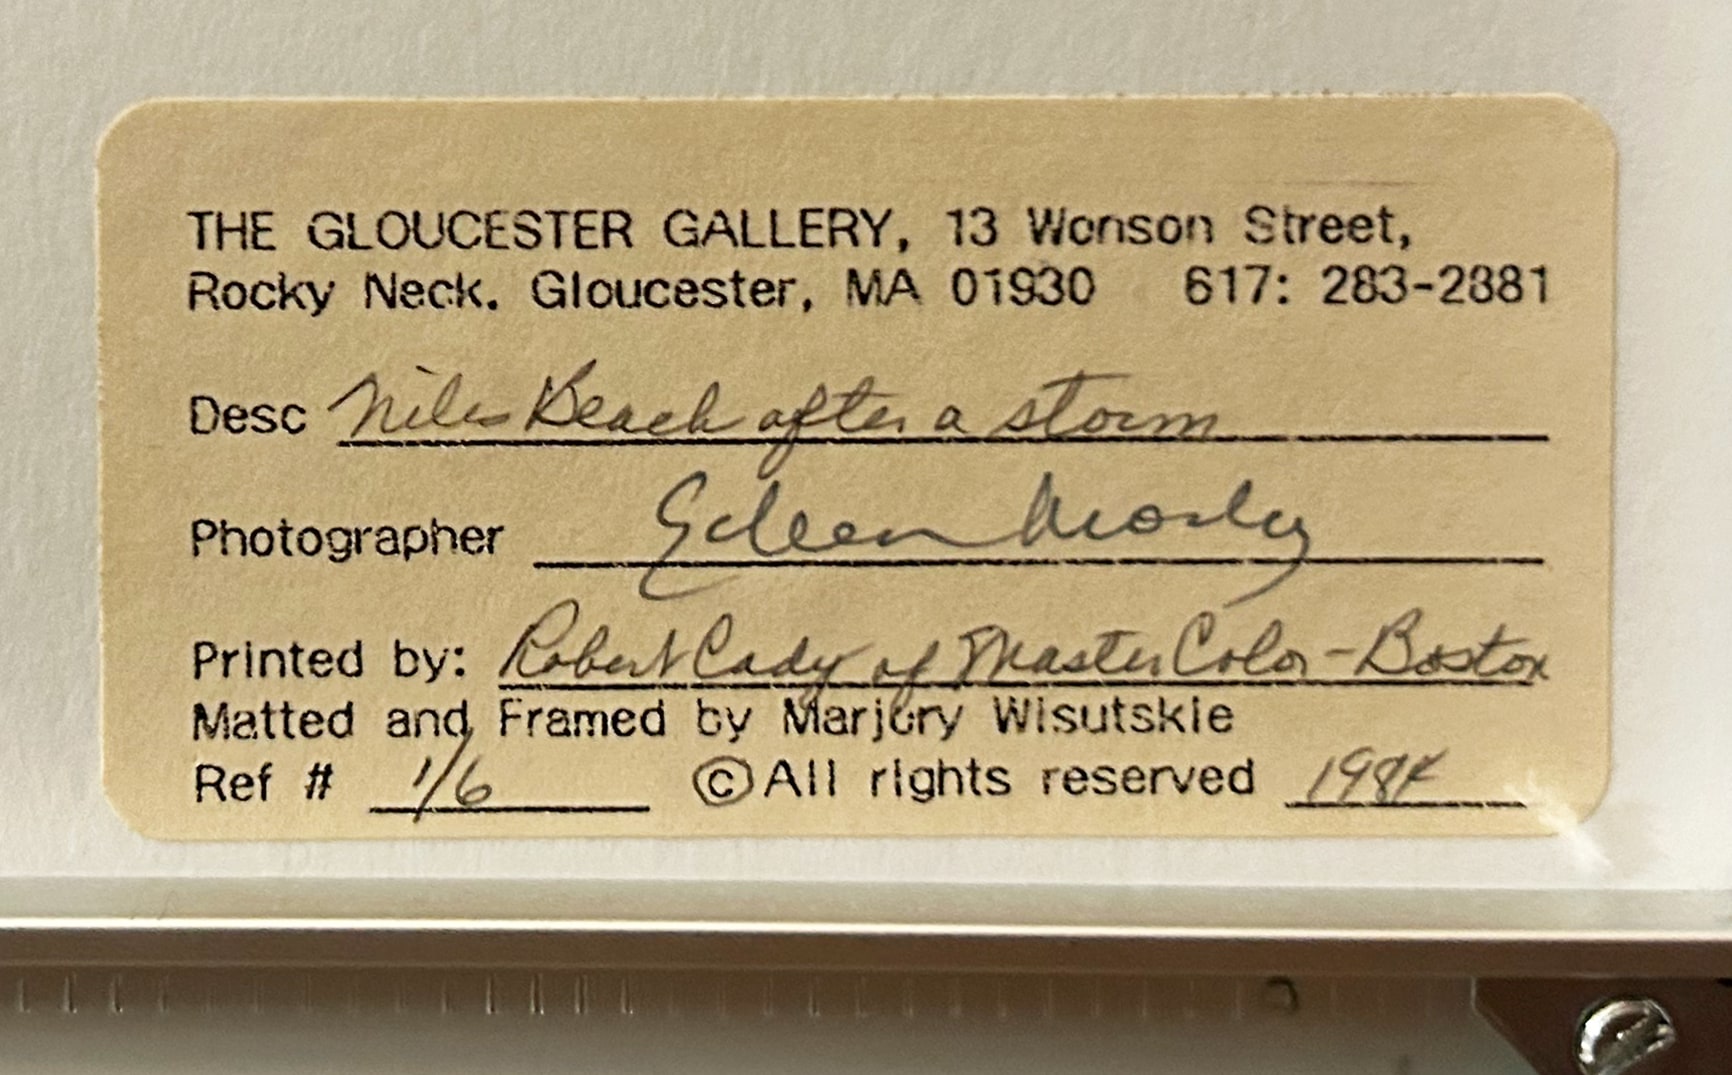 THE GLOUCESTER GALLERY, 13 Wonson Street,
Rocky Neck. Gloucester, MA 01930 617: 283-2881
Desc Niles Beach after a storm
Photographer Eileen Mosley
Printed by: Robert Cady of Master Color - Boston
Matted and Framed by Marjory Wisutskie
Ref # 1/6 ©All rights reserved 1984